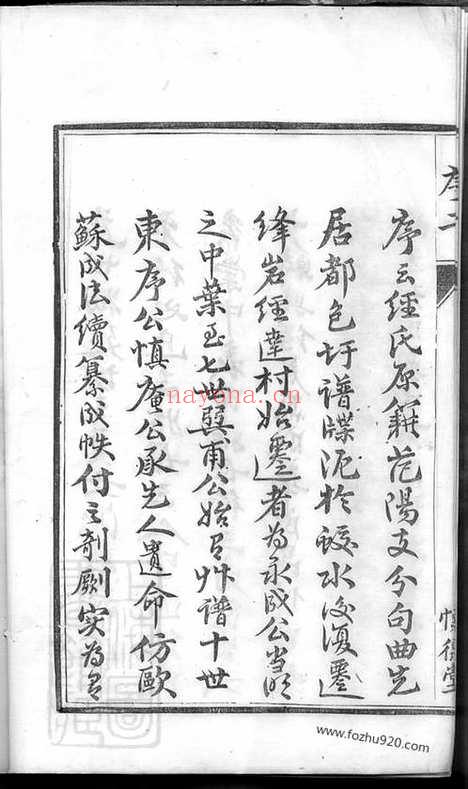 序二
慎德堂
序云經氏原籍范陽支分句曲先
居都色圩譜牒泥於蛟水後復遷
絳岩經達村始遷者為永成公當明
之中葉至七世巽甫公始有艸譜十世
東序公慎庵公承先人遺命仿歐
蘇成法續纂成帙付之剞劂实為有
nayona.cn
www.fozhu920.com